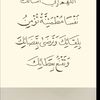 اللهم إني أسألك
نفسا مطمئنة تؤمن
بلقائك وترضى بقضائك
وتقنع بعطائك